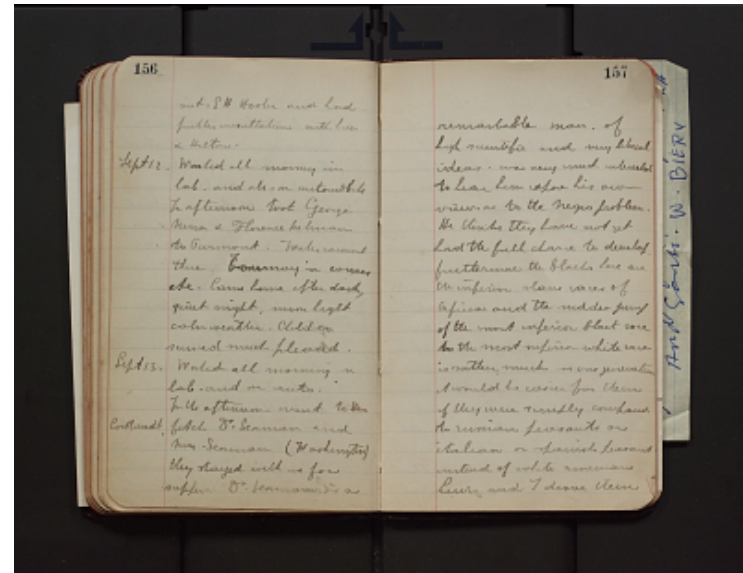 156
and S H Hooker and had
further consultations with him
& Hilton.
Sept 12. Worked all morning in
lab. and also on automobile
In afternoon took George
Miriam & Florence
to Fairmont.
there, in canoes
etc. Came home after dark,
quiet night, moon light
calm weather. Children
seemed much pleased.
Sept 13. Worked all morning in
lab. and on auto.
In the afternoon went to
fetch Dr. Seaman and
Mrs. Seaman (Washington)
they stayed with us for
supper Dr. Seaman is a
157
remarkable man. of
high scientific and very liberal
ideas. was very much interested
to hear him expose his own
views as to the Negro problem.
He thinks they have not yet
had the full chance to develop.
furthermore the blacks here are
the inferior slave races of
Africa and the sudden jump
of the most inferior black race
to the most superior white race
is rather much in one generation
it would be easier for them
if they were simply compared
to russian peasants or
italian or spanish peasant
instead of white americans
and I drove them
W. BIERY